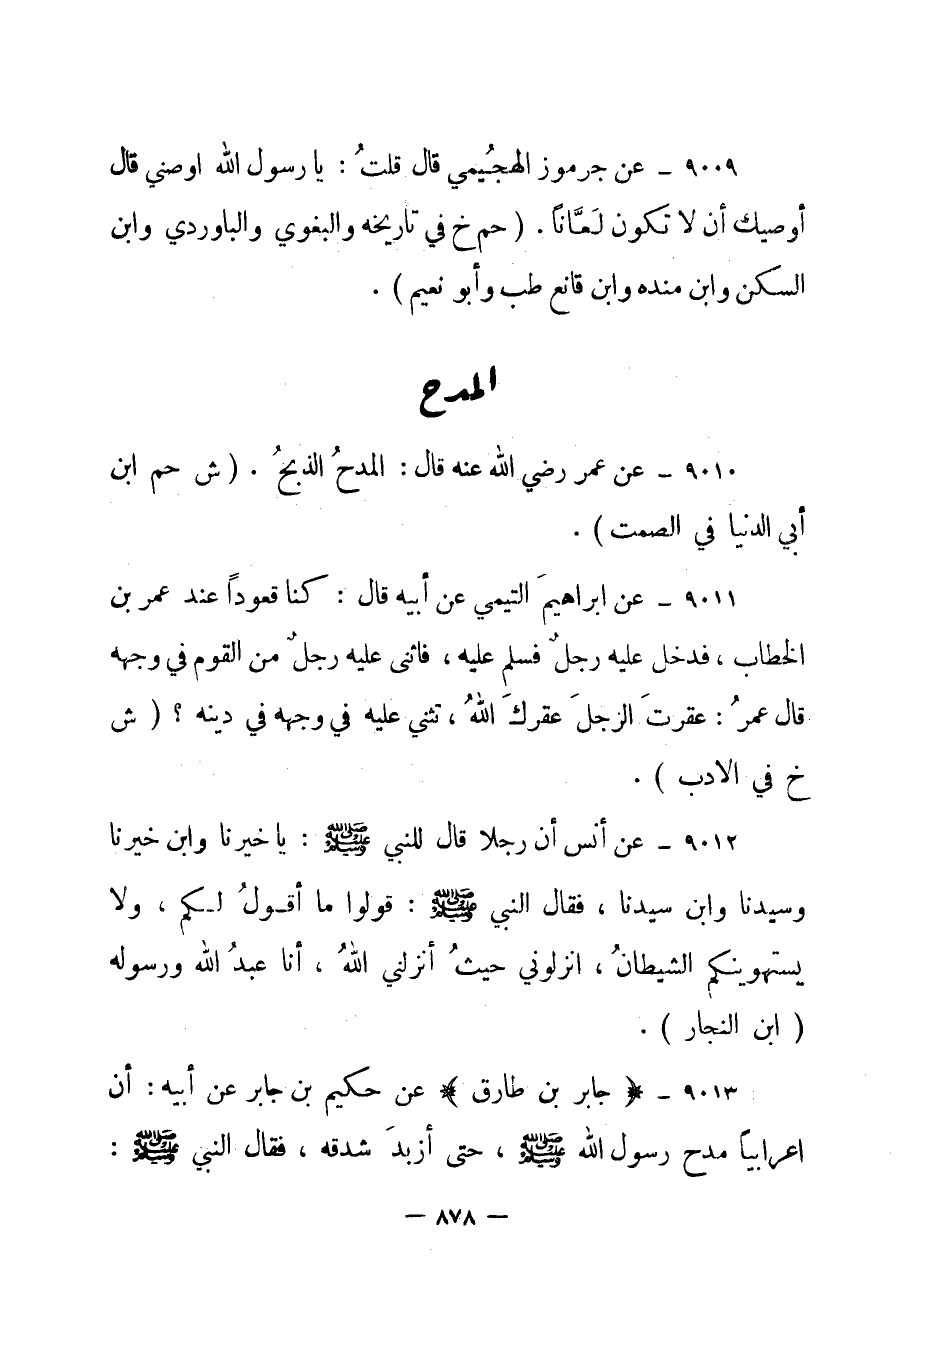 ٩٠٠٩ ـ عن جرموز الهجُيمي قال قلتُ : يا رسول الله اوصني قال
أوصيك أن لا تكون لَعَّاناً . ( حم خ في تاريخه والبغوي والباوردي وابن
السكن وابن منده وابن قانع طب وأبو نعيم ) .
المدح
٩٠١٠ ـ عن عمر رضي الله عنه قال : المدحُ الذبحُ . ( ش حم ابن
أبي الدنيا في الصمت ) .
٩٠١١ ـ عن ابراهيمَ التيمي عن أبيه قال : كنا قعوداً عند عمر بن
الخطاب ، فدخل عليه رجلٌ فسلم عليه ، فاثنى عليه رجلٌ من القوم في وجهه
قال عمرُ : عقرتَ الرجلَ عقركَ اللهُ ، تثني عليه في وجهه في دينه ؟ ( ش
خ في الادب ) .
٩٠١٢ ـ عن أنس أن رجلا قال للنبي ﷺ : يا خيرنا وابن خيرنا
وسيدنا وابن سيدنا ، فقال النبي ﷺ : قولوا ما أقـولُ لـكم ، ولا
يستهوينكم الشيطانُ ، انزلوني حيثُ أنزلني اللهُ ، أنا عبدُ الله ورسوله
( ابن النجار ) .
٩٠١٣ ـ ﴿ جابر بن طارق ﴾ عن حكيم بن جابر عن أبيه : أن
اعرابياً مدح رسول الله ﷺ ، حتى أزبدَ شدقه ، فقال النبي ﷺ :
— ٨٧٨ —